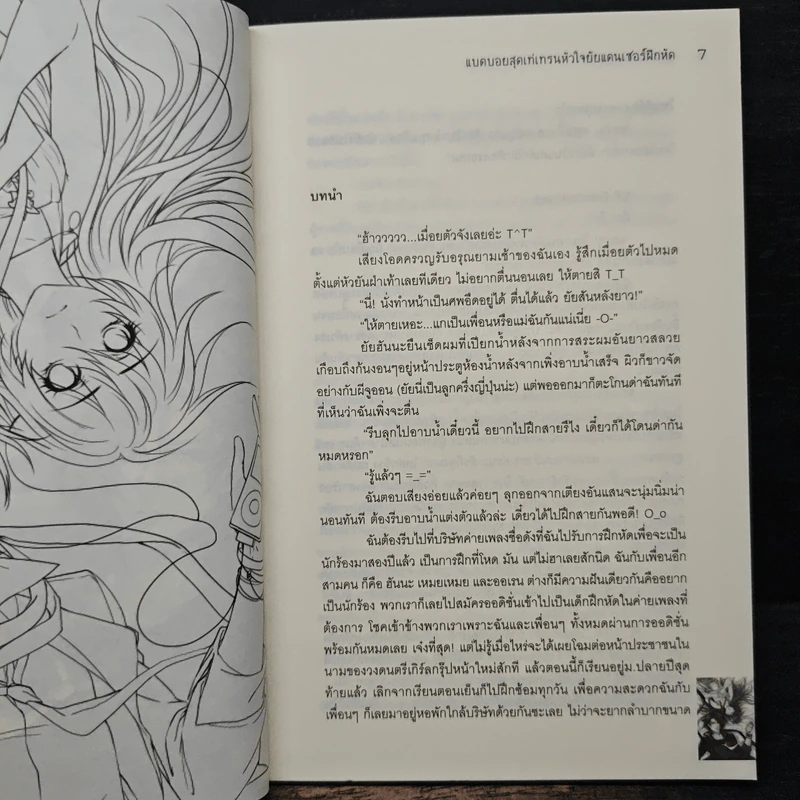 แบดบอยสุดเท่เทรนหัวใจยัยแดนเซอร์ฝึกหัด 7
บทนำ
“ฮ้าววววว...เมื่อยตัวจังเลยอ่ะ T^T”
เสียงโอดครวญรับอรุณยามเช้าของฉันเอง รู้สึกเมื่อยตัวไปหมด
ตั้งแต่หัวยันฝ่าเท้าเลยทีเดียว ไม่อยากตื่นนอนเลย ให้ตายสิ T_T
“นี่! นั่งทำหน้าเป็นศพอืดอยู่ได้ ตื่นได้แล้ว ยัยสันหลังยาว!”
“ให้ตายเหอะ...แกเป็นเพื่อนหรือแม่ฉันกันแน่เนี่ย -O-”
ยัยฮันนะยืนเช็ดผมที่เปียกน้ำหลังจากการสระผมอันยาวสลวย
เกือบถึงก้นงอนๆอยู่หน้าประตูห้องน้ำหลังจากเพิ่งอาบน้ำเสร็จ ผิวก็ขาวจัด
อย่างกับผีจูออน (ยัยนี่เป็นลูกครึ่งญี่ปุ่นน่ะ) แต่พอออกมาก็ตะโกนด่าฉันทันที
ที่เห็นว่าฉันเพิ่งจะตื่น
“รีบลุกไปอาบน้ำเดี๋ยวนี้ อยากไปฝึกสายรึไง เดี๋ยวก็ได้โดนด่ากัน
หมดหรอก”
“รู้แล้วๆ =_=”
ฉันตอบเสียงอ่อยแล้วค่อยๆ ลุกออกจากเตียงอันแสนจะนุ่มนิ่มน่า
นอนทันที ต้องรีบอาบน้ำแต่งตัวแล้วล่ะ เดี๋ยวได้ไปฝึกสายกันพอดี! O_o
ฉันต้องรีบไปที่บริษัทค่ายเพลงชื่อดังที่ฉันไปรับการฝึกหัดเพื่อจะเป็น
นักร้องมาสองปีแล้ว เป็นการฝึกที่โหด มัน แต่ไม่ฮาเลยสักนิด ฉันกับเพื่อนอีก
สามคน ก็คือ ฮันนะ เหมยเหมย และออเรน ต่างก็มีความฝันเดียวกันคืออยาก
เป็นนักร้อง พวกเราก็เลยไปสมัครออดิชั่นเข้าไปเป็นเด็กฝึกหัดในค่ายเพลงที่
ต้องการ โชคเข้าข้างพวกเราเพราะฉันและเพื่อนๆ ทั้งหมดผ่านการออดิชั่น
พร้อมกันหมดเลย เจ๋งที่สุด! แต่ไม่รู้เมื่อไหร่จะได้เผยโฉมต่อหน้าประชาชนใน
นามของวงดนตรีเกิร์ลกรุ๊ปหน้าใหม่สักที แล้วตอนนี้ก็เรียนอยู่ม.ปลายปีสุด
ท้ายแล้ว เลิกจากเรียนตอนเย็นก็ไปฝึกซ้อมทุกวัน เพื่อความสะดวกฉันกับ
เพื่อนๆ ก็เลยมาอยู่หอพักใกล้บริษัทด้วยกันซะเลย ไม่ว่าจะยากลำบากขนาด